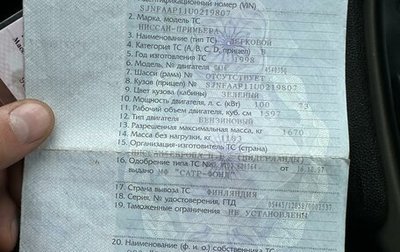 Идентификационный номер (VIN)
SJNFAAP11U0219807
2. Марка, модель ТС
НИССАН-ПРИМЬЕРА 1.6
3. Наименование (тип ТС) ЛЕГКОВОЙ
4. Категория ТС (A, B, C, D, прицеп) B
5. Год изготовления ТС 1998
6. Модель, № двигателя
7. Шасси (рама) № ОТСУТСТВУЕТ
8. Кузов (прицеп) № SJNFAAP11U0219807
9. Цвет кузова (кабины) ЗЕЛЕНЫЙ
10. Мощность двигателя, л. с. (кВт) 100 73
11. Рабочий объем двигателя, куб. см 1597
12. Тип двигателя БЕНЗИНОВЫЙ
13. Разрешенная максимальная масса, кг 1670
14. Масса без нагрузки, кг
15. Организация-изготовитель ТС (страна)
16. Одобрение типа ТС № от
выдано НФ "САТР-ФОНД"
17. Страна вывоза ТС ФИНЛЯНДИЯ
18. Серия, № удостоверения, ГТД
19. Таможенные ограничения НЕ УСТАНОВЛЕНЫ
20. Наименование (ф. и. о.) собственника ТС